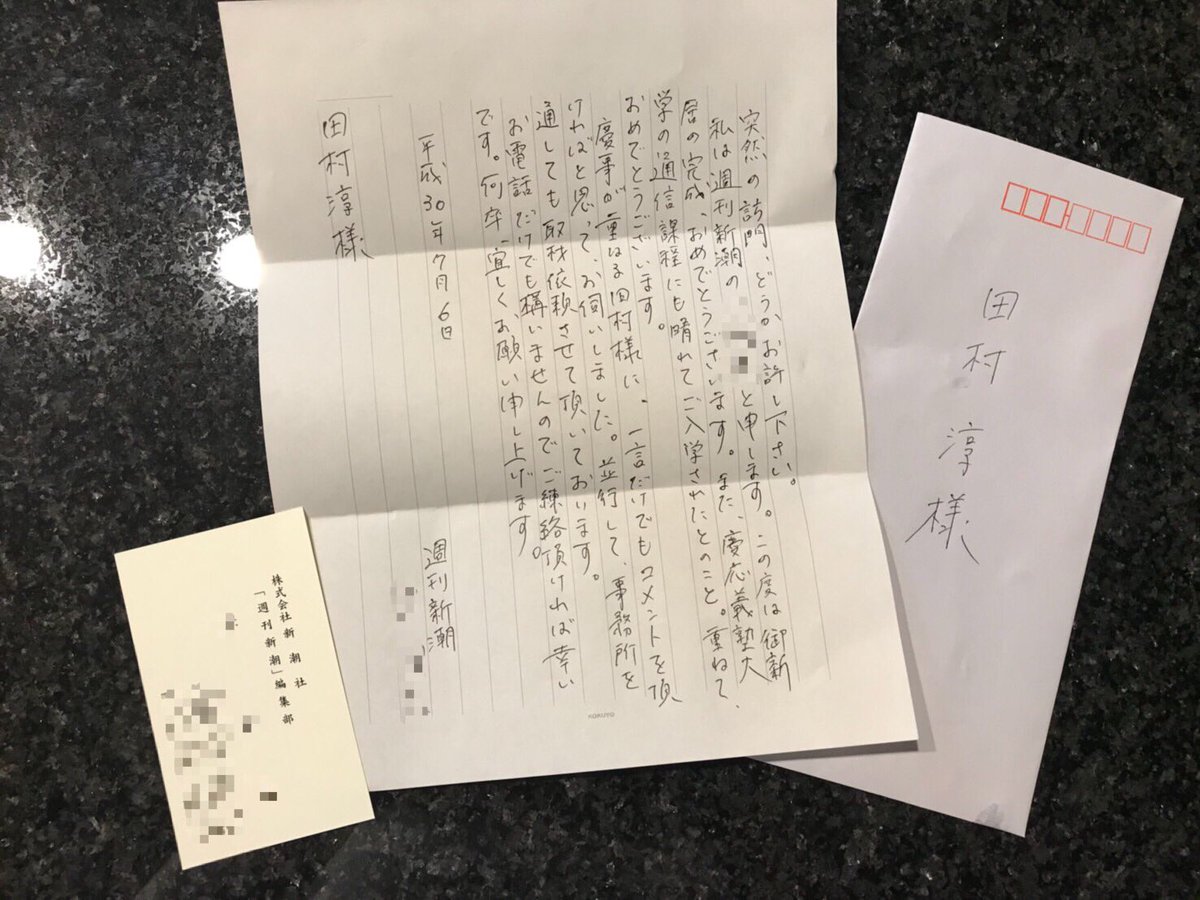 突然の訪門、どうかお許し下さい。
私は週刊新潮の
と申します。この度は御新
居の完成、おめでとうございます。また、慶応義塾大
学の通信課程にも晴れてご入学されたとのこと。重ねて、
おめでとうございます。
慶事が重なる田村様に、一言だけでもコメントを頂
ければと思って、お伺いしました。並行して、事務所を
通しても取材依頼させて頂いております。
お電話だけでも構いませんのでご練絡頂ければ幸い
です。何卒、宜しくお願い申し上げます。
平成30年7月6日
週刊新潮
田村淳様
KOKUYO
田村 淳様
株式会社新潮社
「週刊新潮」編集部